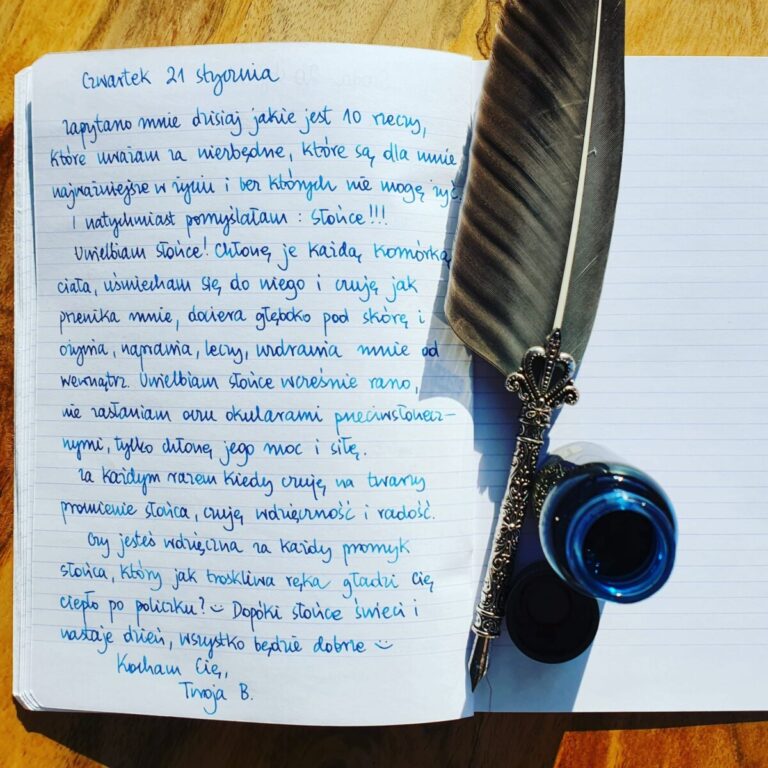 Czwartek 21 stycznia
Zapytano mnie dzisiaj jakie jest 10 rzeczy,
które uważam za niezbędne, które są dla mnie
najważniejsze w życiu i bez których nie mogę żyć.
I natychmiast pomyślałam : słońce!!!
Uwielbiam słońce! Chłonę je każdą komórką
ciała, uśmiecham się do niego i czuję jak
przenika mnie, dociera głęboko pod skórę i
ożywia, naprawia, leczy, uzdrawia mnie od
wewnątrz. Uwielbiam słońce wcześnie rano,
nie zasłaniam oczu okularami przeciwsłonecz-
nymi, tylko chłonę jego moc i siłę.
Za każdym razem kiedy czuję na twarzy
promienie słońca, czuję wdzięczność i radość.
Czy jesteś wdzięczna za każdy promyk
słońca, który jak troskliwa ręka gładzi Cię
ciepło po policzku? Dopóki słońce świeci i
nastaje dzień, wszystko będzie dobrze
Kocham Cię,
Twoja B.